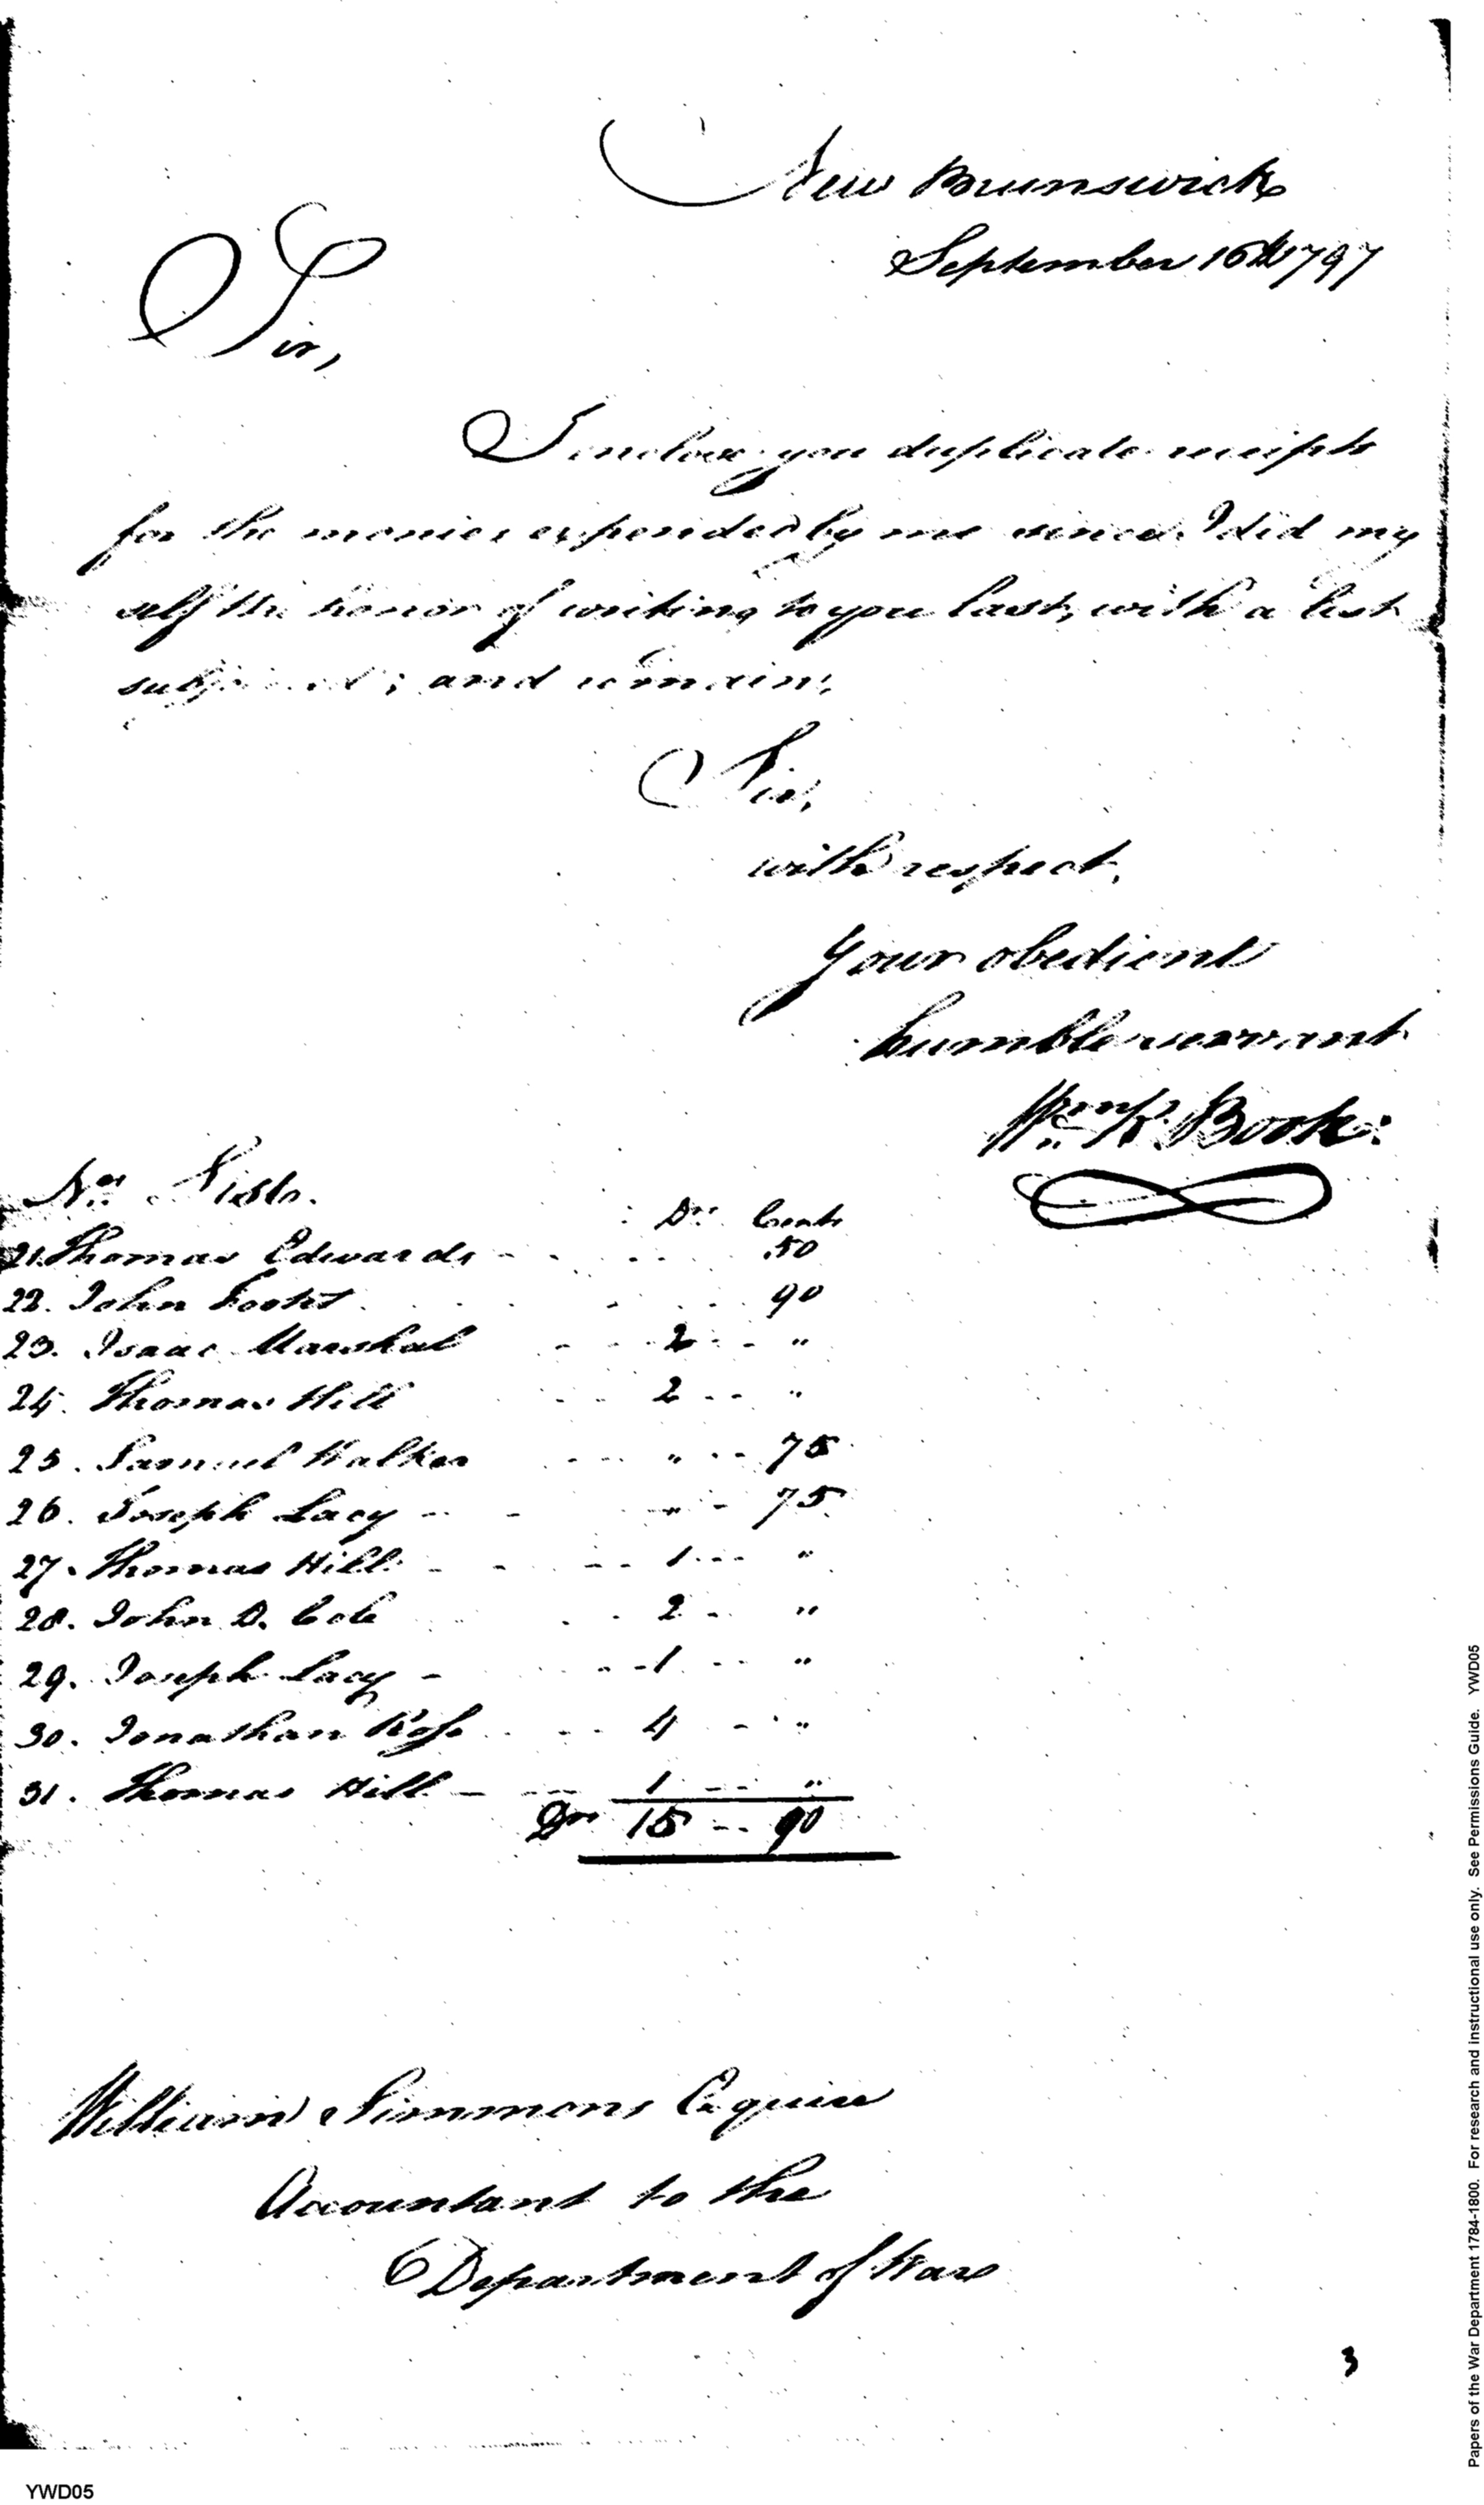 New Brunswick
September 16th 1797
Sir,
I inclose you duplicate receipts
for the monies expended by me since I did my
self the honor of writing to you last, with a list
subjoined; and remain,
Sir,
with respect,
Your obedient
humble servant
Wm. K.
Nos. List. Drs. Cents
21. Thomas Edwards - - - - - .50
22. John - - - - 90
23. Isaac Marshal - - 2 - - "
24. Thomas Hill - - 2 - - "
25. Samuel Walker - - - " - - 75
26. Joseph Lacy - - - " - 75
27. Thomas Hill - - - - 1 - - - "
28. John D. Cole - - 2 - "
29. Joseph Lacy - - - 1 - - "
30. Jonathan Rose - - - 4 - "
31. Thomas Hill - - 1 - - "
Drs 15 - - 90
William Simmons Esquire
Accountant to the
Department of War
3
YWD05
Papers of the War Department 1784-1800. For research and instructional use only. See Permissions Guide. YWD05